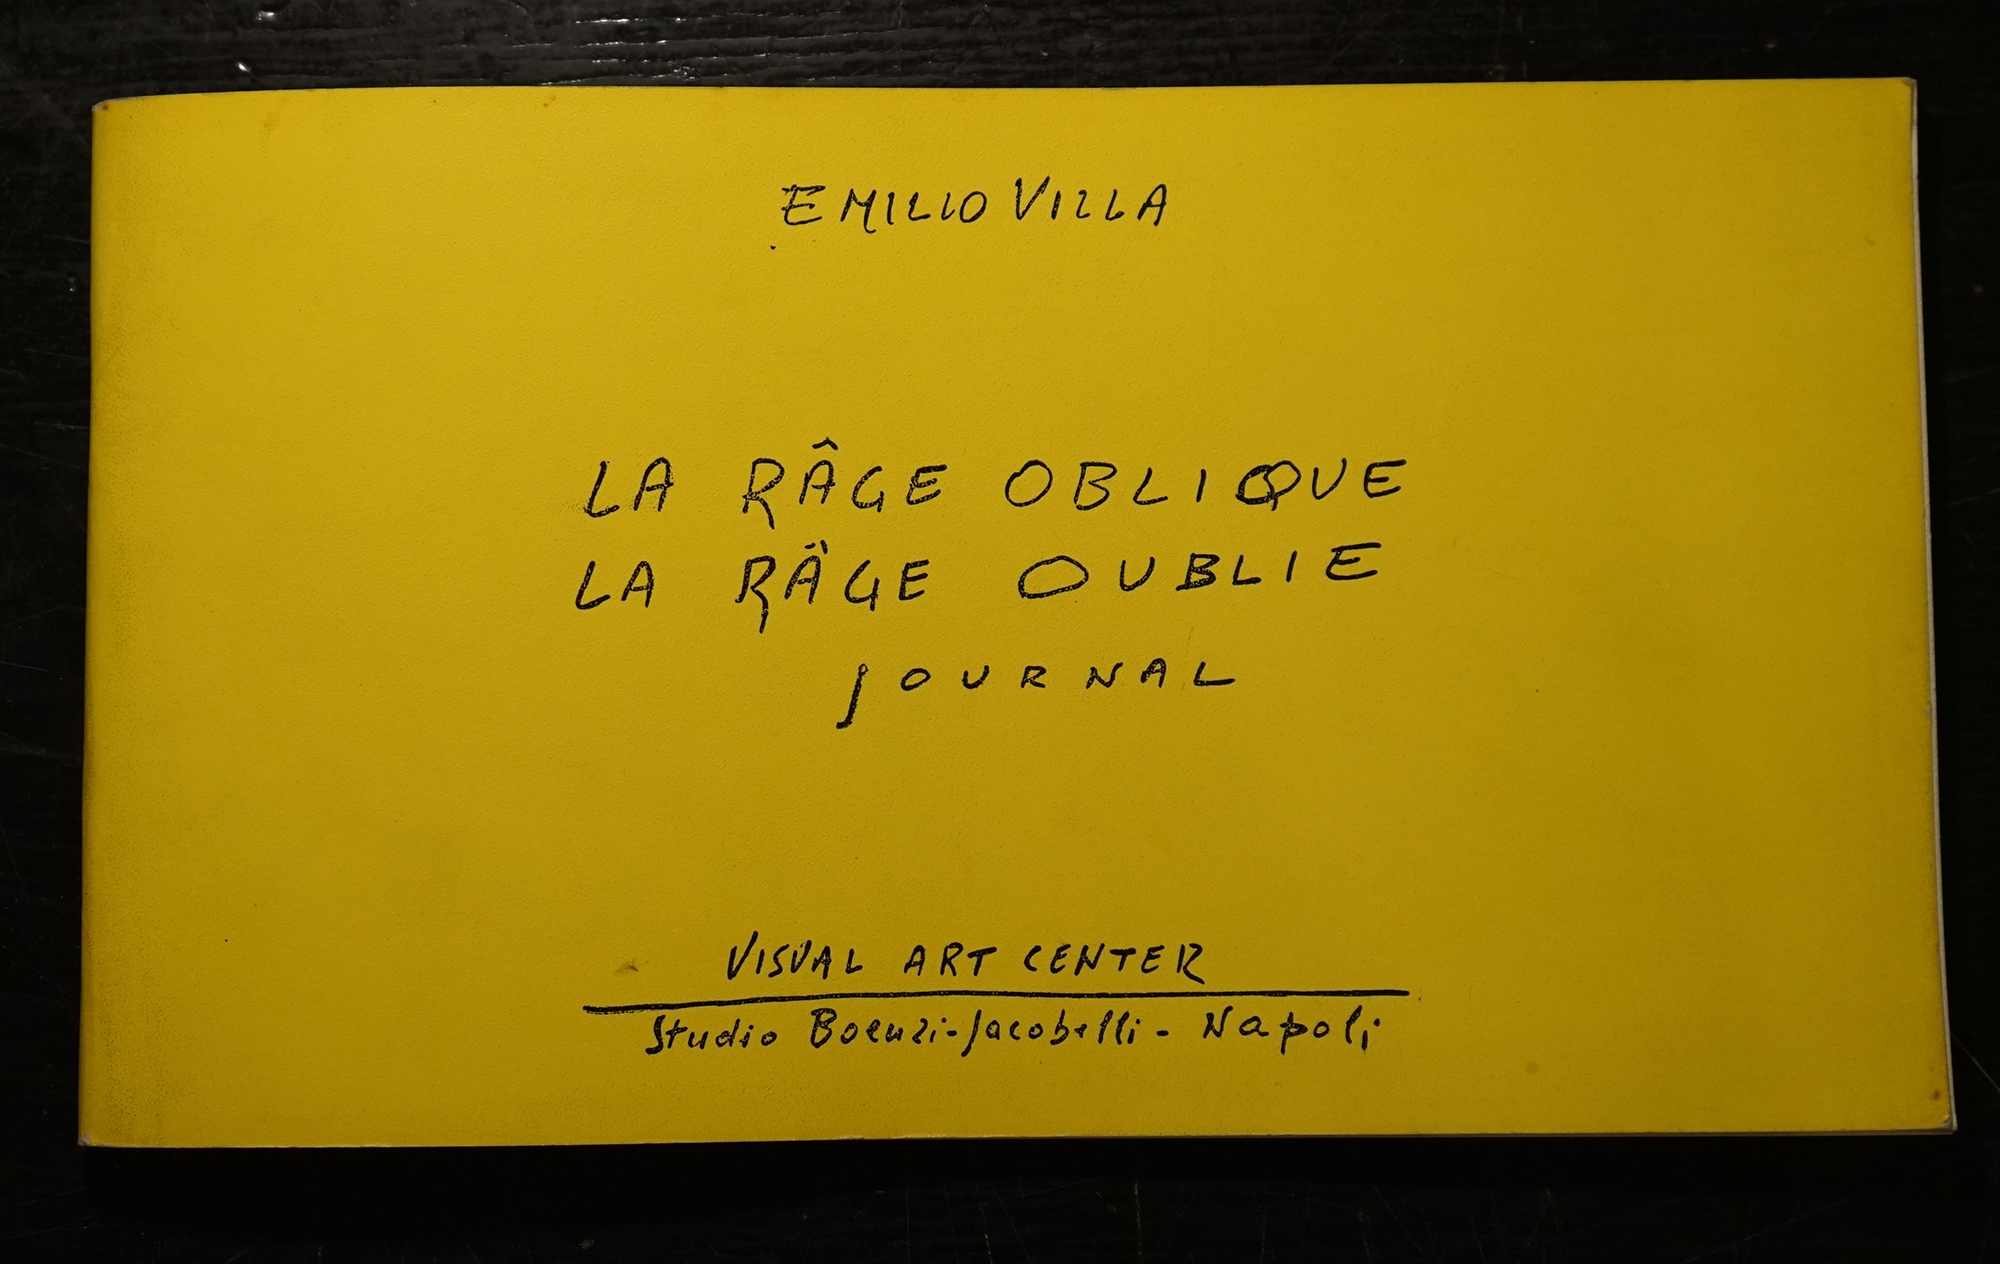 EMILIO VILLA
LA RÂGE OBLIQUE
LA RÂGE OUBLIE
JOURNAL
VISUAL ART CENTER
Studio Boenzi-Jacobelli - Napoli